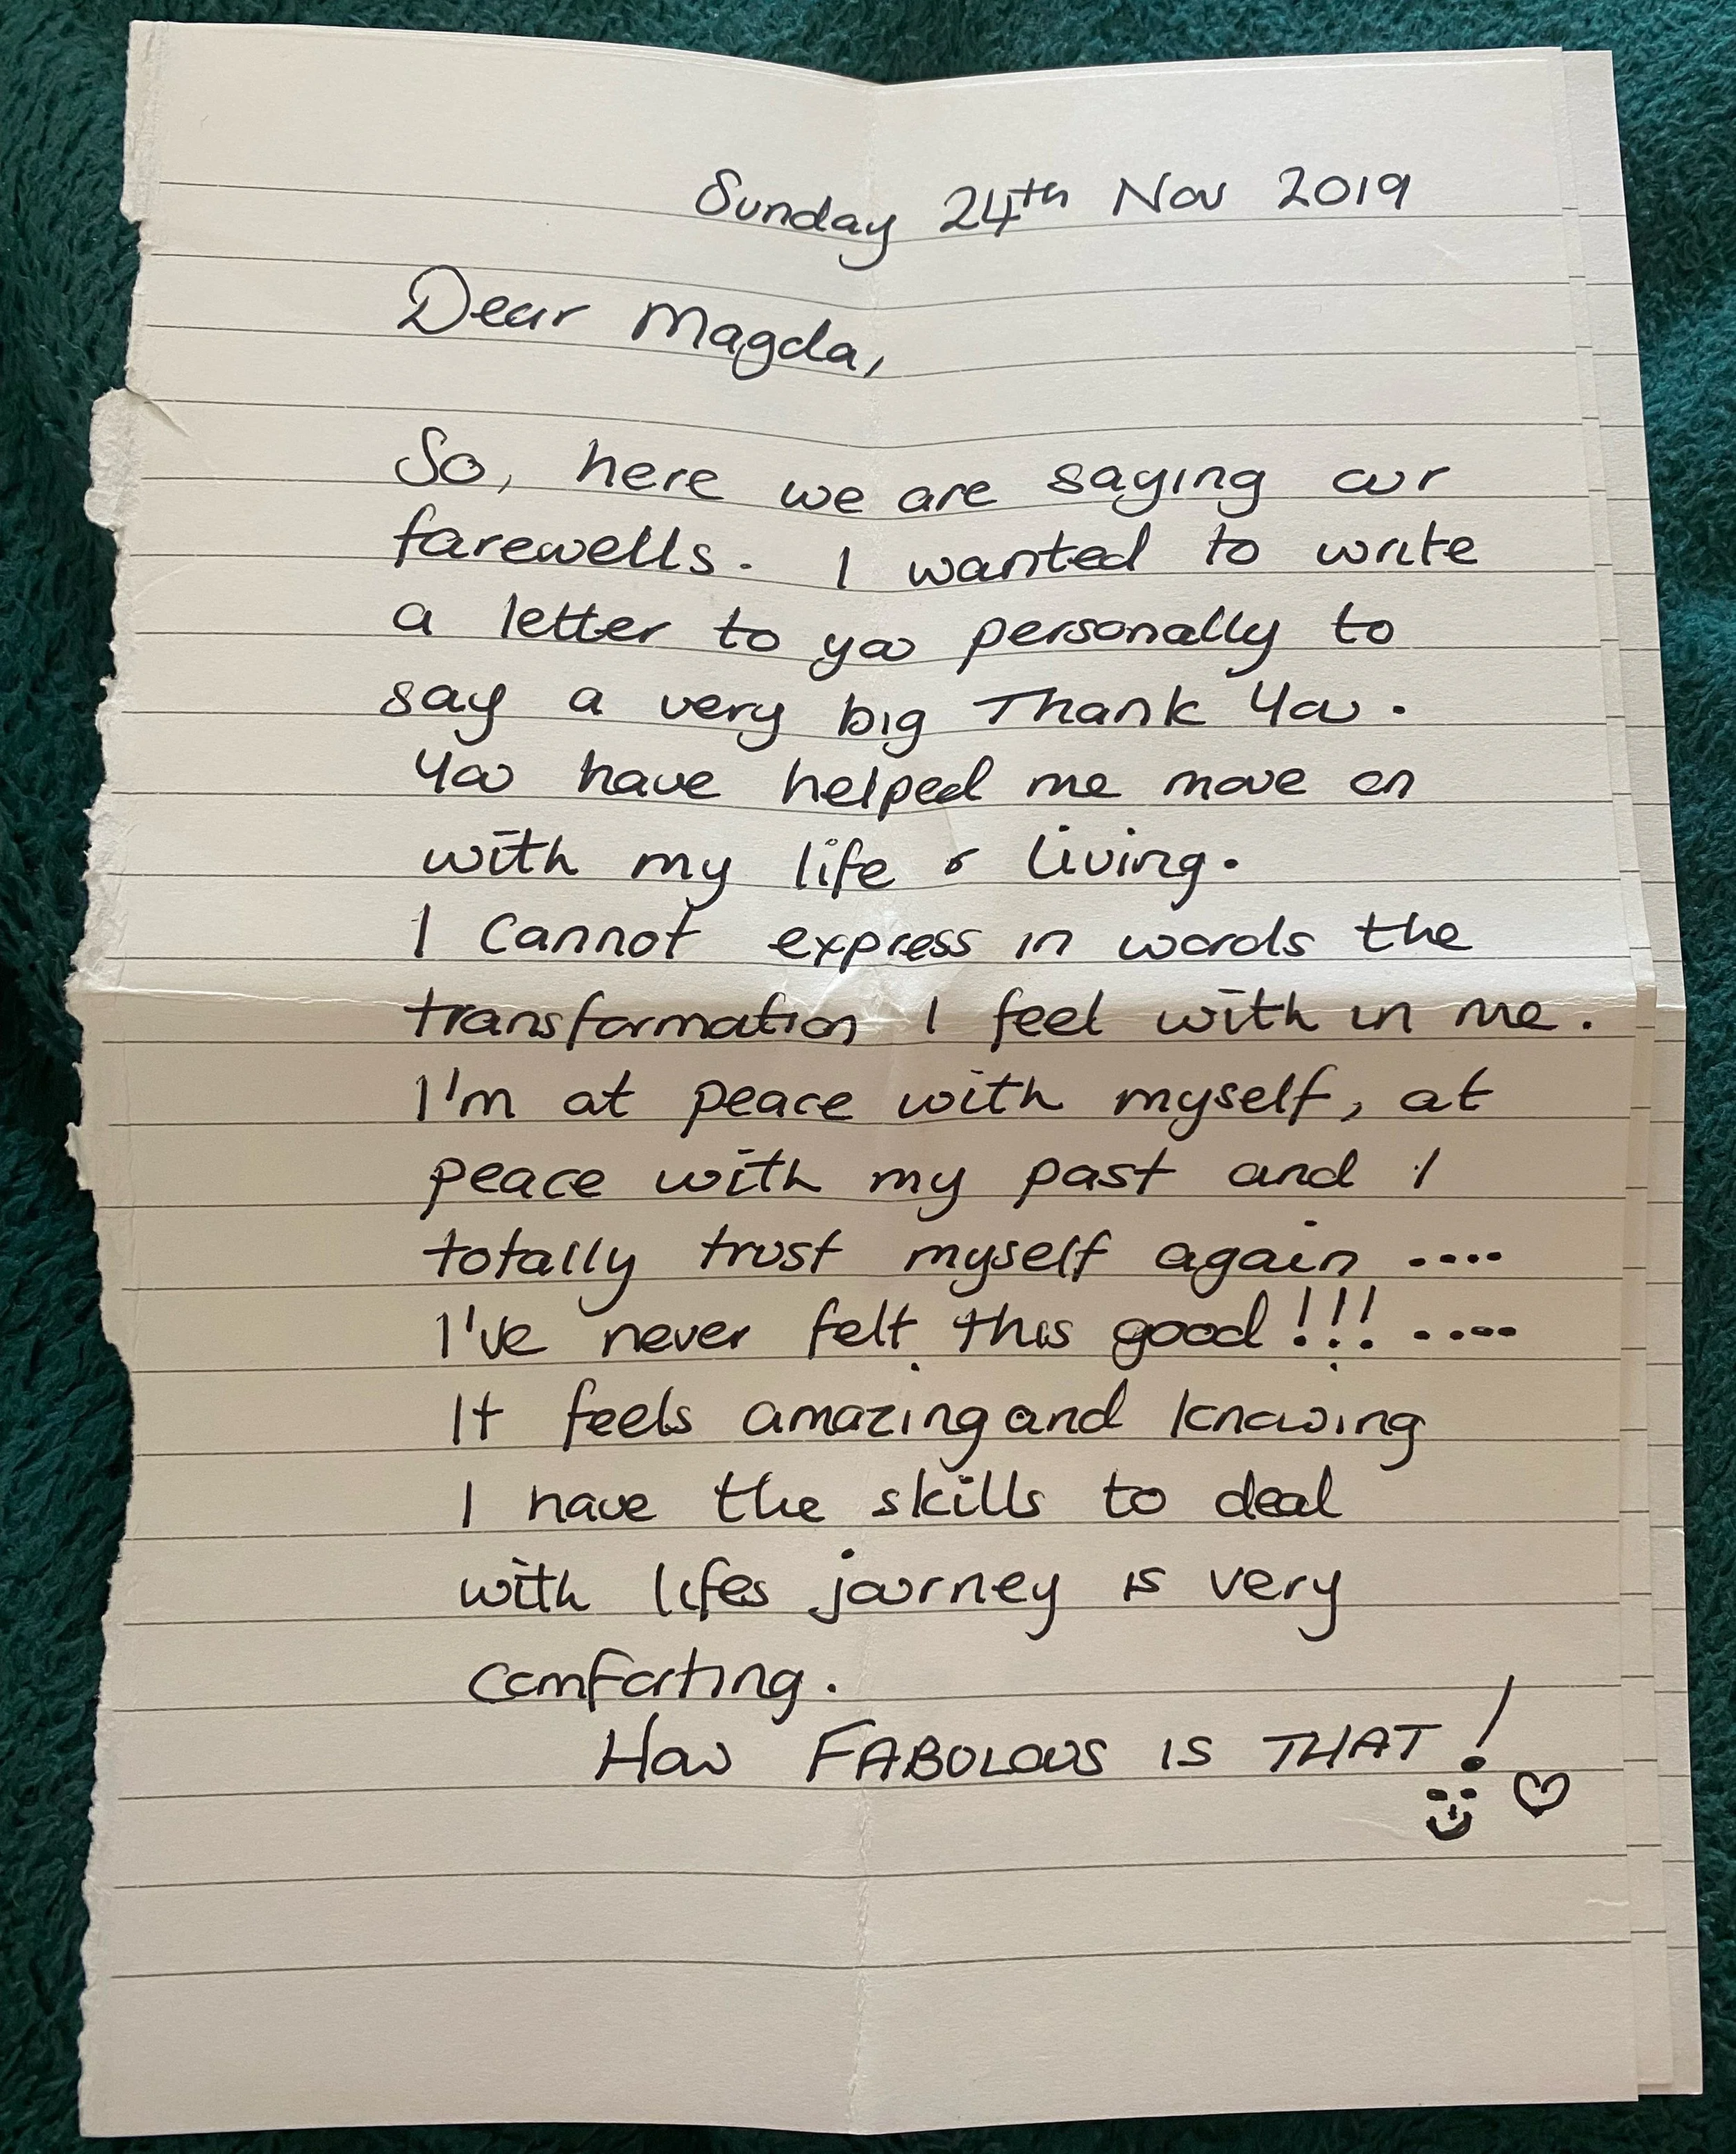 Sunday 24th Nov 2019
Dear Magda,
So, here we are saying our
farewells. I wanted to write
a letter to you personally to
say a very big Thank You.
You have helped me move on
with my life & living.
I cannot express in words the
transformation I feel with in me.
I'm at peace with myself, at
peace with my past and I
totally trust myself again ....
I've never felt this good!!! ....
It feels amazing and knowing
I have the skills to deal
with lifes journey is very
comforting.
How FABULOUS IS THAT!